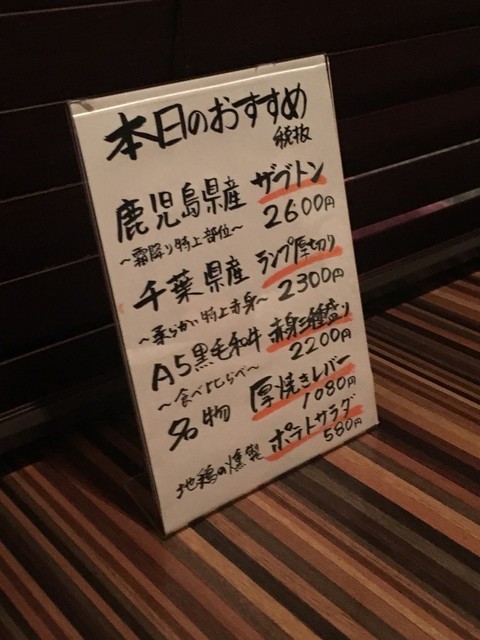 本日のおすすめ
税抜
鹿児島県産 ザブトン
～霜降り特上部位～ 2600円
千葉県産 ランプ厚切り
～柔らかい特上赤身～ 2300円
A5黒毛和牛 赤身三種盛り
～食べくらべ～ 2200円
名物 厚焼きレバー
1080円
地鶏の燻製 ポテトサラダ
580円